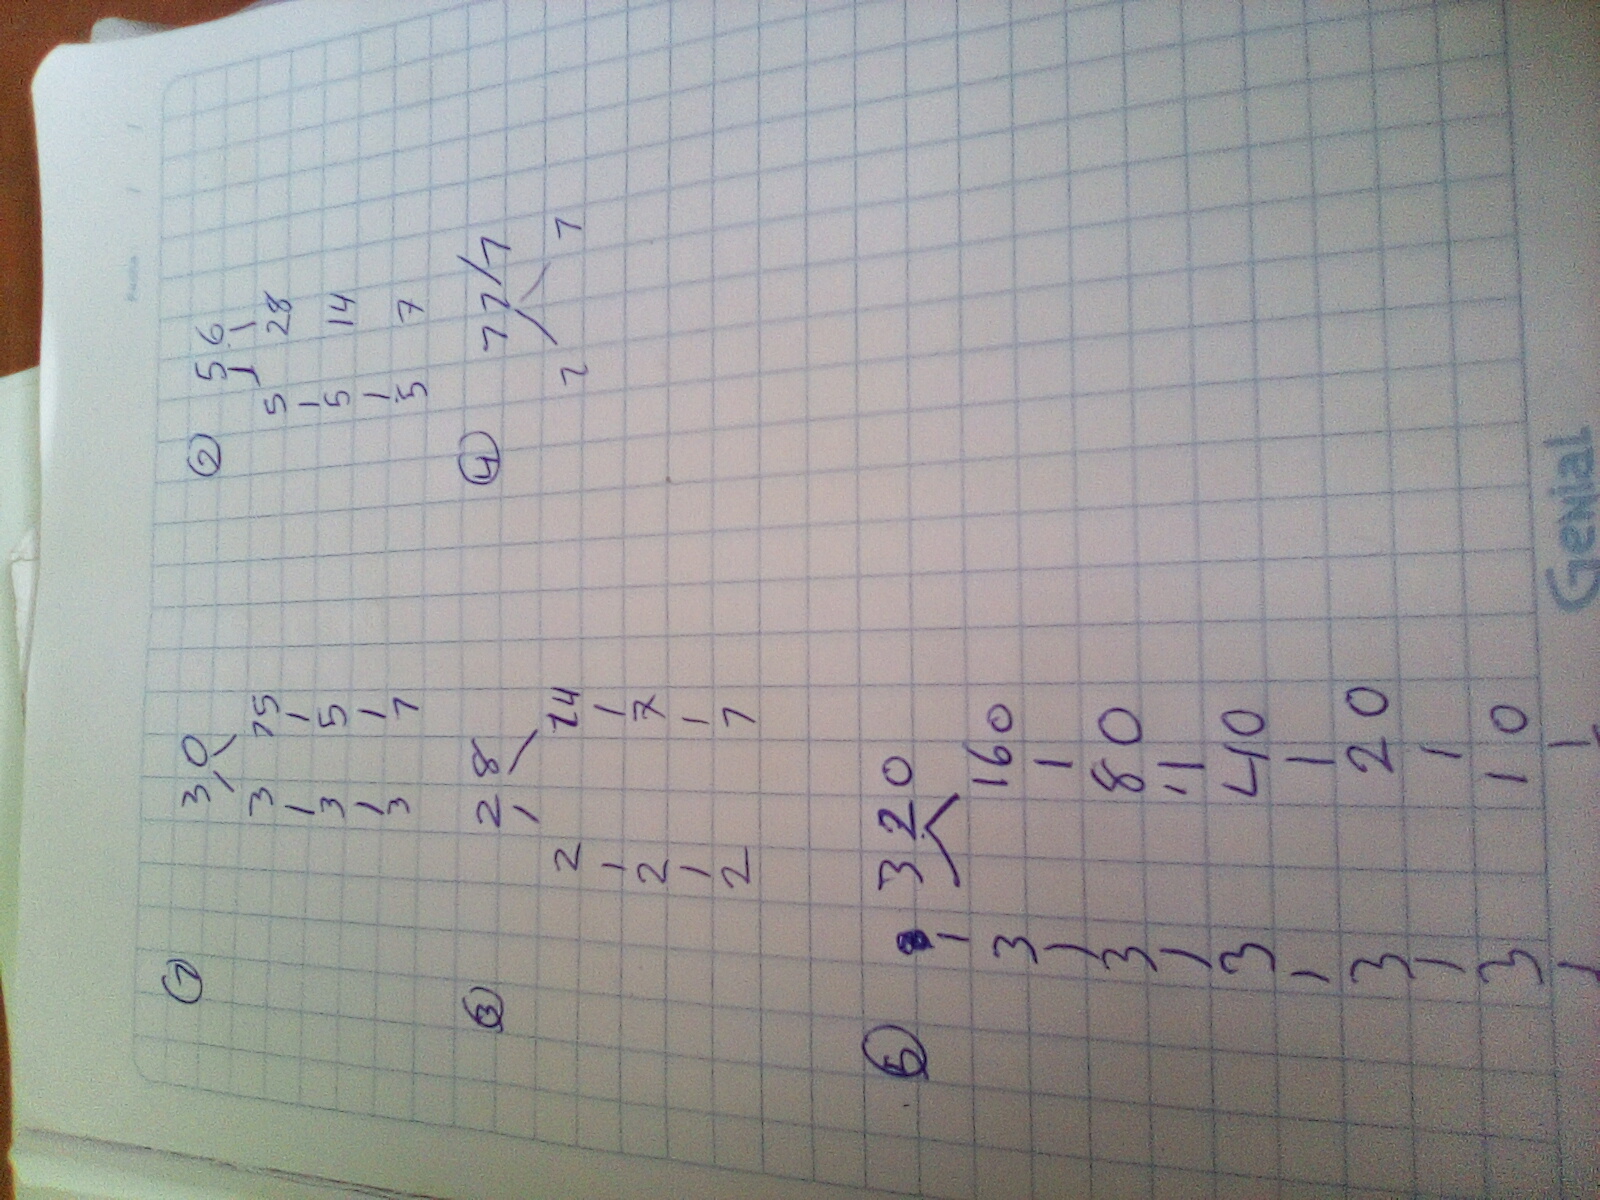 ① 30
3 15
3 5
3 1
② 56
5 28
5 14
5 7
③ 28
2 14
2 7
2 1
④
⑤ 320
3 160
3 80
3 40
3 20
3 10
Genial